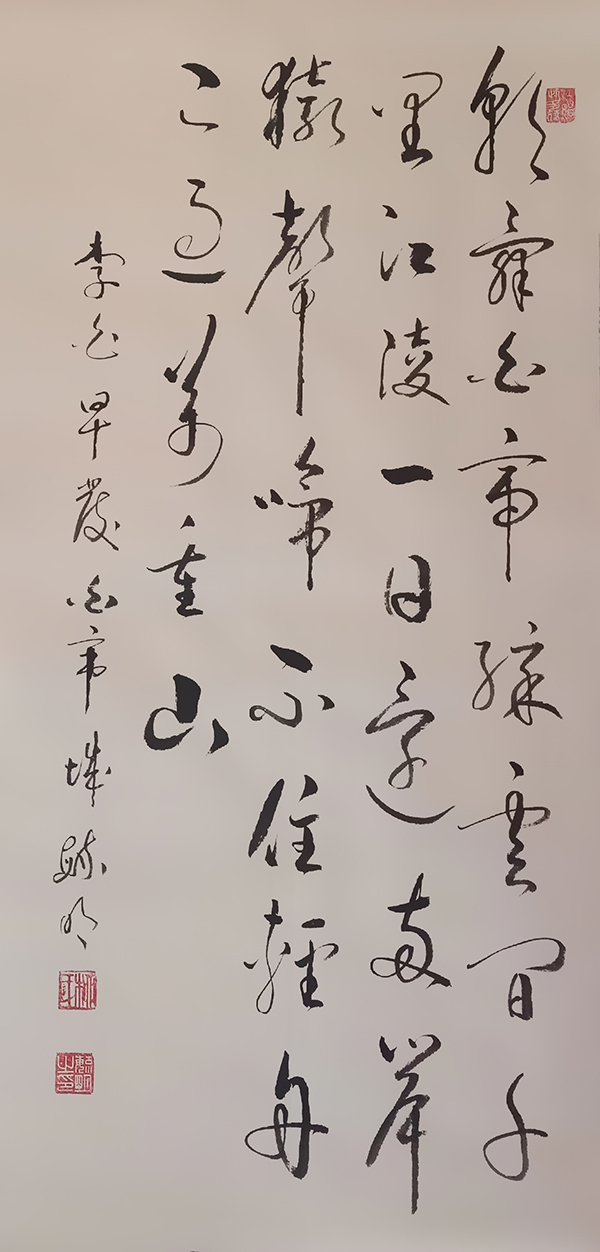 朝辭白帝綵雲間千
里江陵一日還兩岸
猿聲啼不住輕舟
已過萬重山
李白早發白帝城